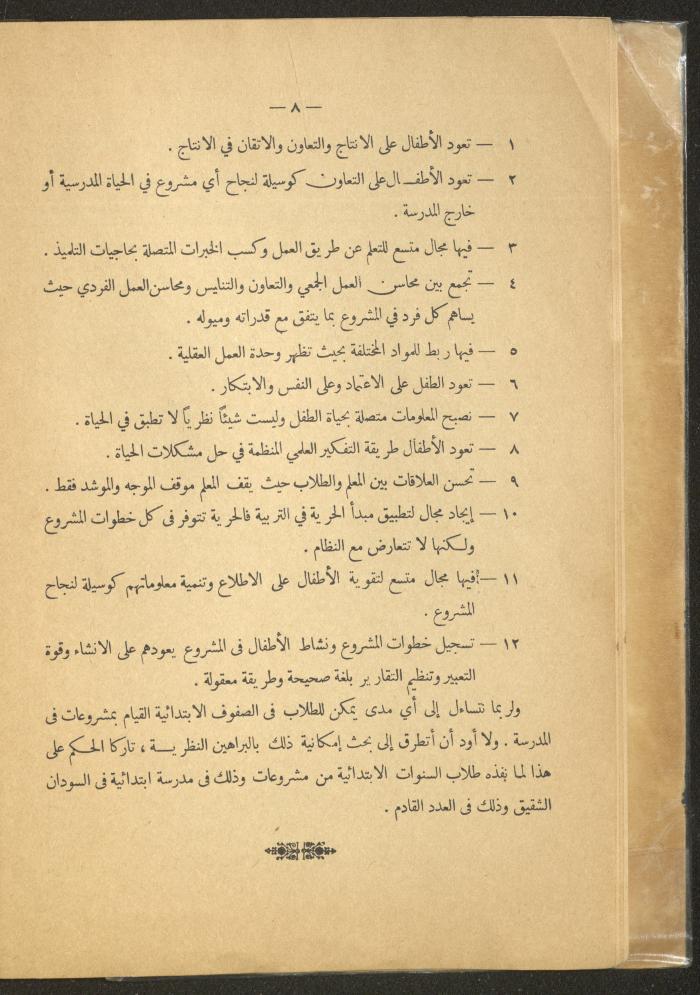 — ٨ —
١ — تعود الأطفال على الانتاج والتعاون والاتقان في الانتاج .
٢ — تعود الأطفـال على التعاون كوسيلة لنجاح أي مشروع في الحياة المدرسية أو
خارج المدرسة .
٣ — فيها مجال متسع للتعلم عن طريق العمل وكسب الخبرات المتصلة بحاجيات التلميذ .
٤ — تجمع بين محاسن العمل الجمعي والتعاون والتنايس ومحاسن العمل الفردي حيث
يساهم كل فرد في المشروع بما يتفق مع قدراته وميوله .
٥ — فيها ربط للمواد المختلفة بحيث تظهر وحدة العمل العقلية .
٦ — تعود الطفل على الاعتماد وعلى النفس والابتكار .
٧ — نصبح المعلومات متصلة بحياة الطفل وليست شيئاً نظرياً لا تطبق في الحياة .
٨ — تعود الأطفال طريقة التفكير العلمي المنظمة في حل مشكلات الحياة .
٩ — تحسن العلاقات بين المعلم والطلاب حيث يقف المعلم موقف الموجه والموشد فقط .
١٠ — إيجاد مجال لتطبيق مبدأ الحرية في التربية فالحرية تتوفر فى كل خطوات المشروع
ولكنها لا تتعارض مع النظام .
١١ — فيها مجال متسع لتقوية الأطفال على الاطلاع وتنمية معلوماتهم كوسيلة لنجاح
المشروع .
١٢ — تسجيل خطوات المشروع ونشاط الأطفال فى المشروع يعودهم على الانشاء وقوة
التعبير وتنظيم التقارير بلغة صحيحة وطريقة معقولة .
ولربما نتساءل إلى أي مدى يمكن للطلاب فى الصفوف الابتدائية القيام بمشروعات فى
المدرسة . ولا أود أن أتطرق إلى بحث إمكانية ذلك بالبراهين النظريـة ، تاركا الحكم على
هذا لما نفذه طلاب السنوات الابتدائية من مشروعات وذلك فى مدرسة ابتدائية فى السودان
الشقيق وذلك فى العدد القادم .